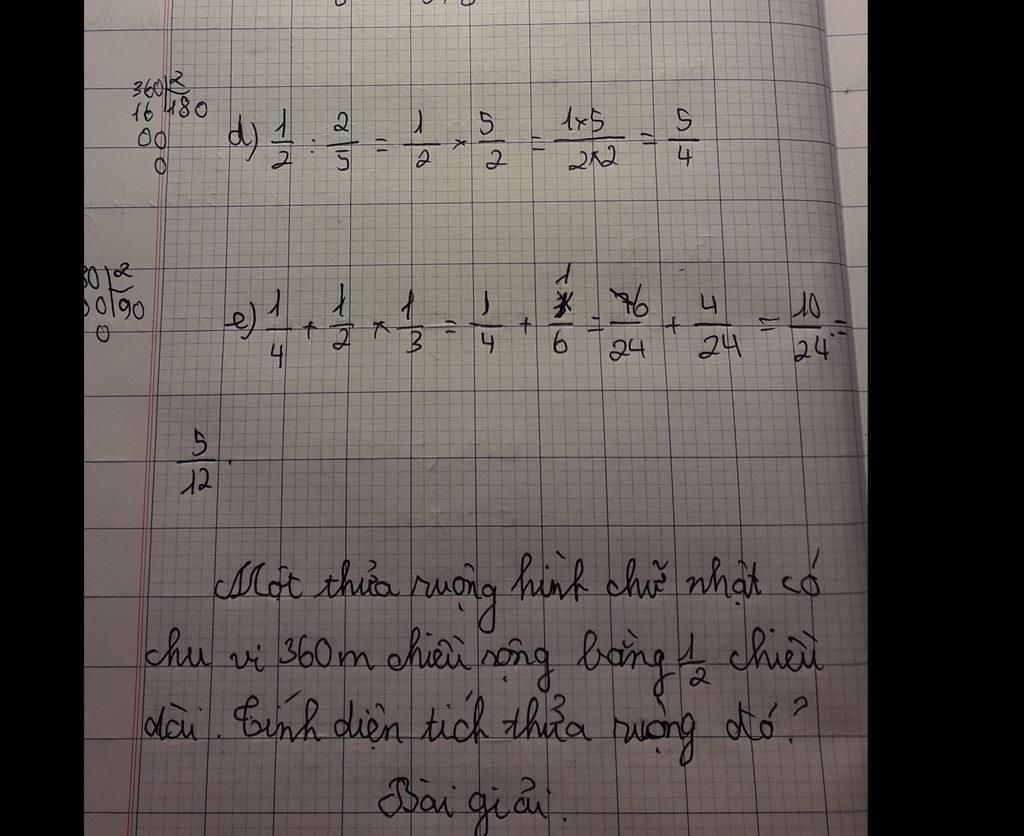 360 2
16 180
00
0
d) 1/2 : 2/5 = 1/2 × 5/2 = 1×5/2×2 = 5/4
0 2
0 90
0
e) 1/4 + 1/2 × 1/3 = 1/4 + 1/6 = 6/24 + 4/24 = 10/24 =
5/12.
Một thửa ruộng hình chữ nhật có
chu vi 360m chiều rộng bằng 1/2 chiều
dài. Tính diện tích thửa ruộng đó?
Bài giải.